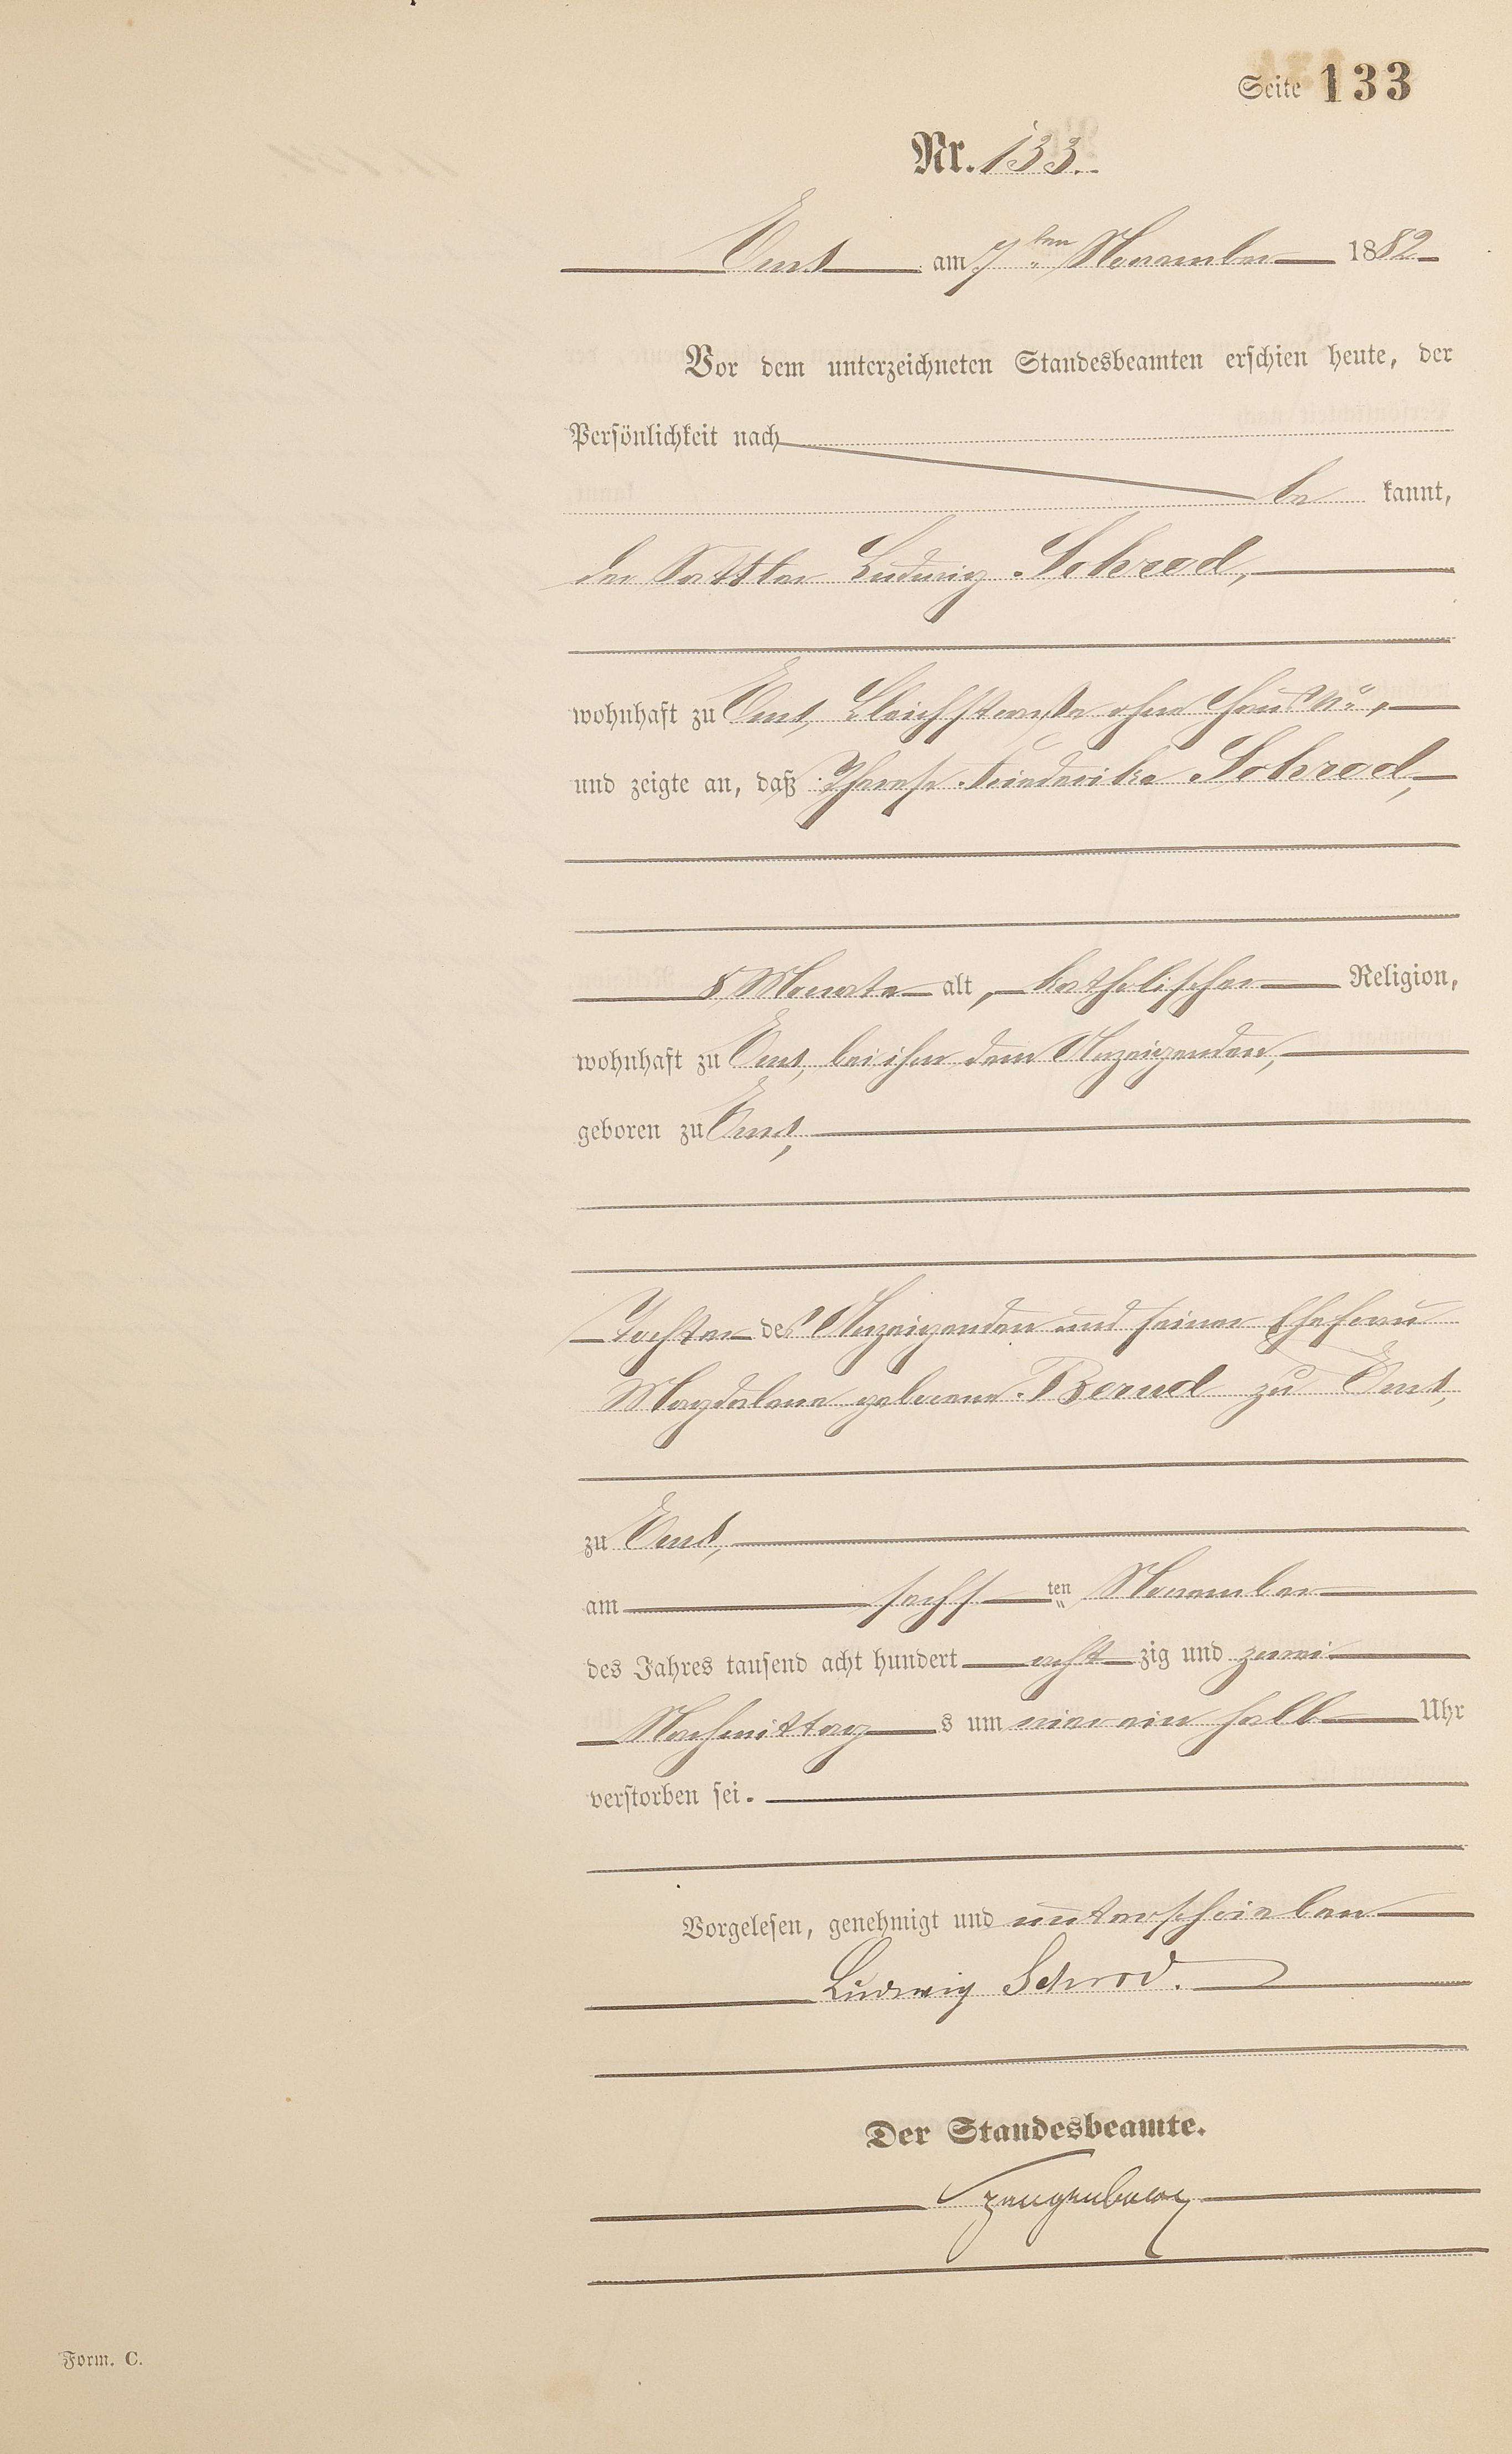 Seite 133
Nr. 133.
Ems am 7ten November 1882
Vor dem unterzeichneten Standesbeamten erschien heute, der
Persönlichkeit nach
be kannt,
der Sattler Ludwig Schrod,
wohnhaft zu Ems, Bleichstraße ohne Haus No,
und zeigte an, daß Therese Friederike Schrod,
8 Monate alt, katholischer Religion,
wohnhaft zu Ems, bei ihm dem Anzeigenden,
geboren zu Ems,
Tochter des Anzeigenden und seiner Ehefrau
Magdalena geborene zu Ems,
zu Ems,
am sechsten November
des Jahres tausend acht hundert acht zig und zwei
Nachmittags um vier ein halb Uhr
verstorben sei.
Vorgelesen, genehmigt und unterschrieben
Ludwig Schrod.
Der Standesbeamte.
Form. C.